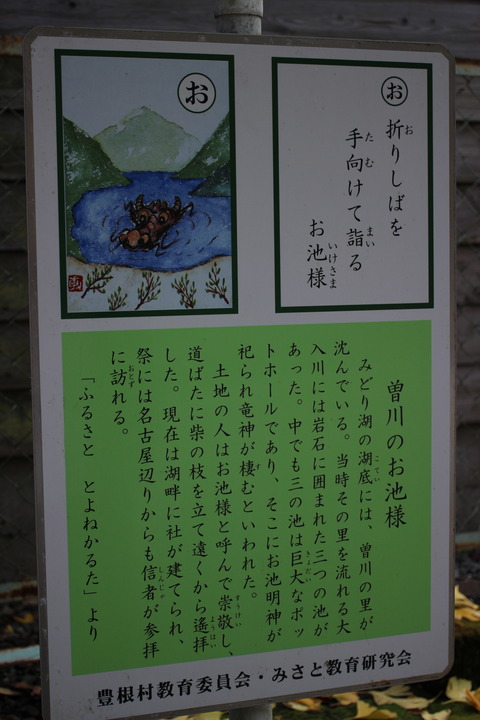 お
お
折りしばを
手向けて詣る
お池様
曽川のお池様
みどり湖の湖底には、曽川の里が
沈んでいる。当時その里を流れる大
入川には岩石に囲まれた三つの池が
あった。中でも三の池は巨大なポッ
トホールであり、そこにお池明神が
祀られ竜神が棲むといわれた。
土地の人はお池様と呼んで崇敬し、
道ばたに柴の枝を立て遠くから遙拝
した。現在は湖畔に社が建てられ、
祭には名古屋辺りからも信者が参拝
に訪れる。
「ふるさと とよねかるた」より
豊根村教育委員会・みさと教育研究会